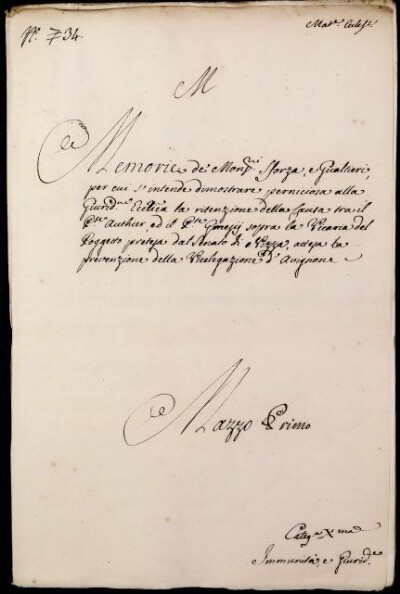 N.° 734.
Mat.e Eccles.e
M
Memorie dei Mons.ri Sforza, e Gualtieri,
per cui s'intende dimostrare perniciosa alla
Giurid.ne Eccl.ca la ritenzione della Causa tra il
P.te Authier, ed il P.te sopra la Vicaria del
Poggetto pretesa dal Senato di Nizza, attesa la
prevenzione della Vicelegazione d'Avignone
Mazzo Primo
Categ.a X.ma
Immunità, e Giurid.e